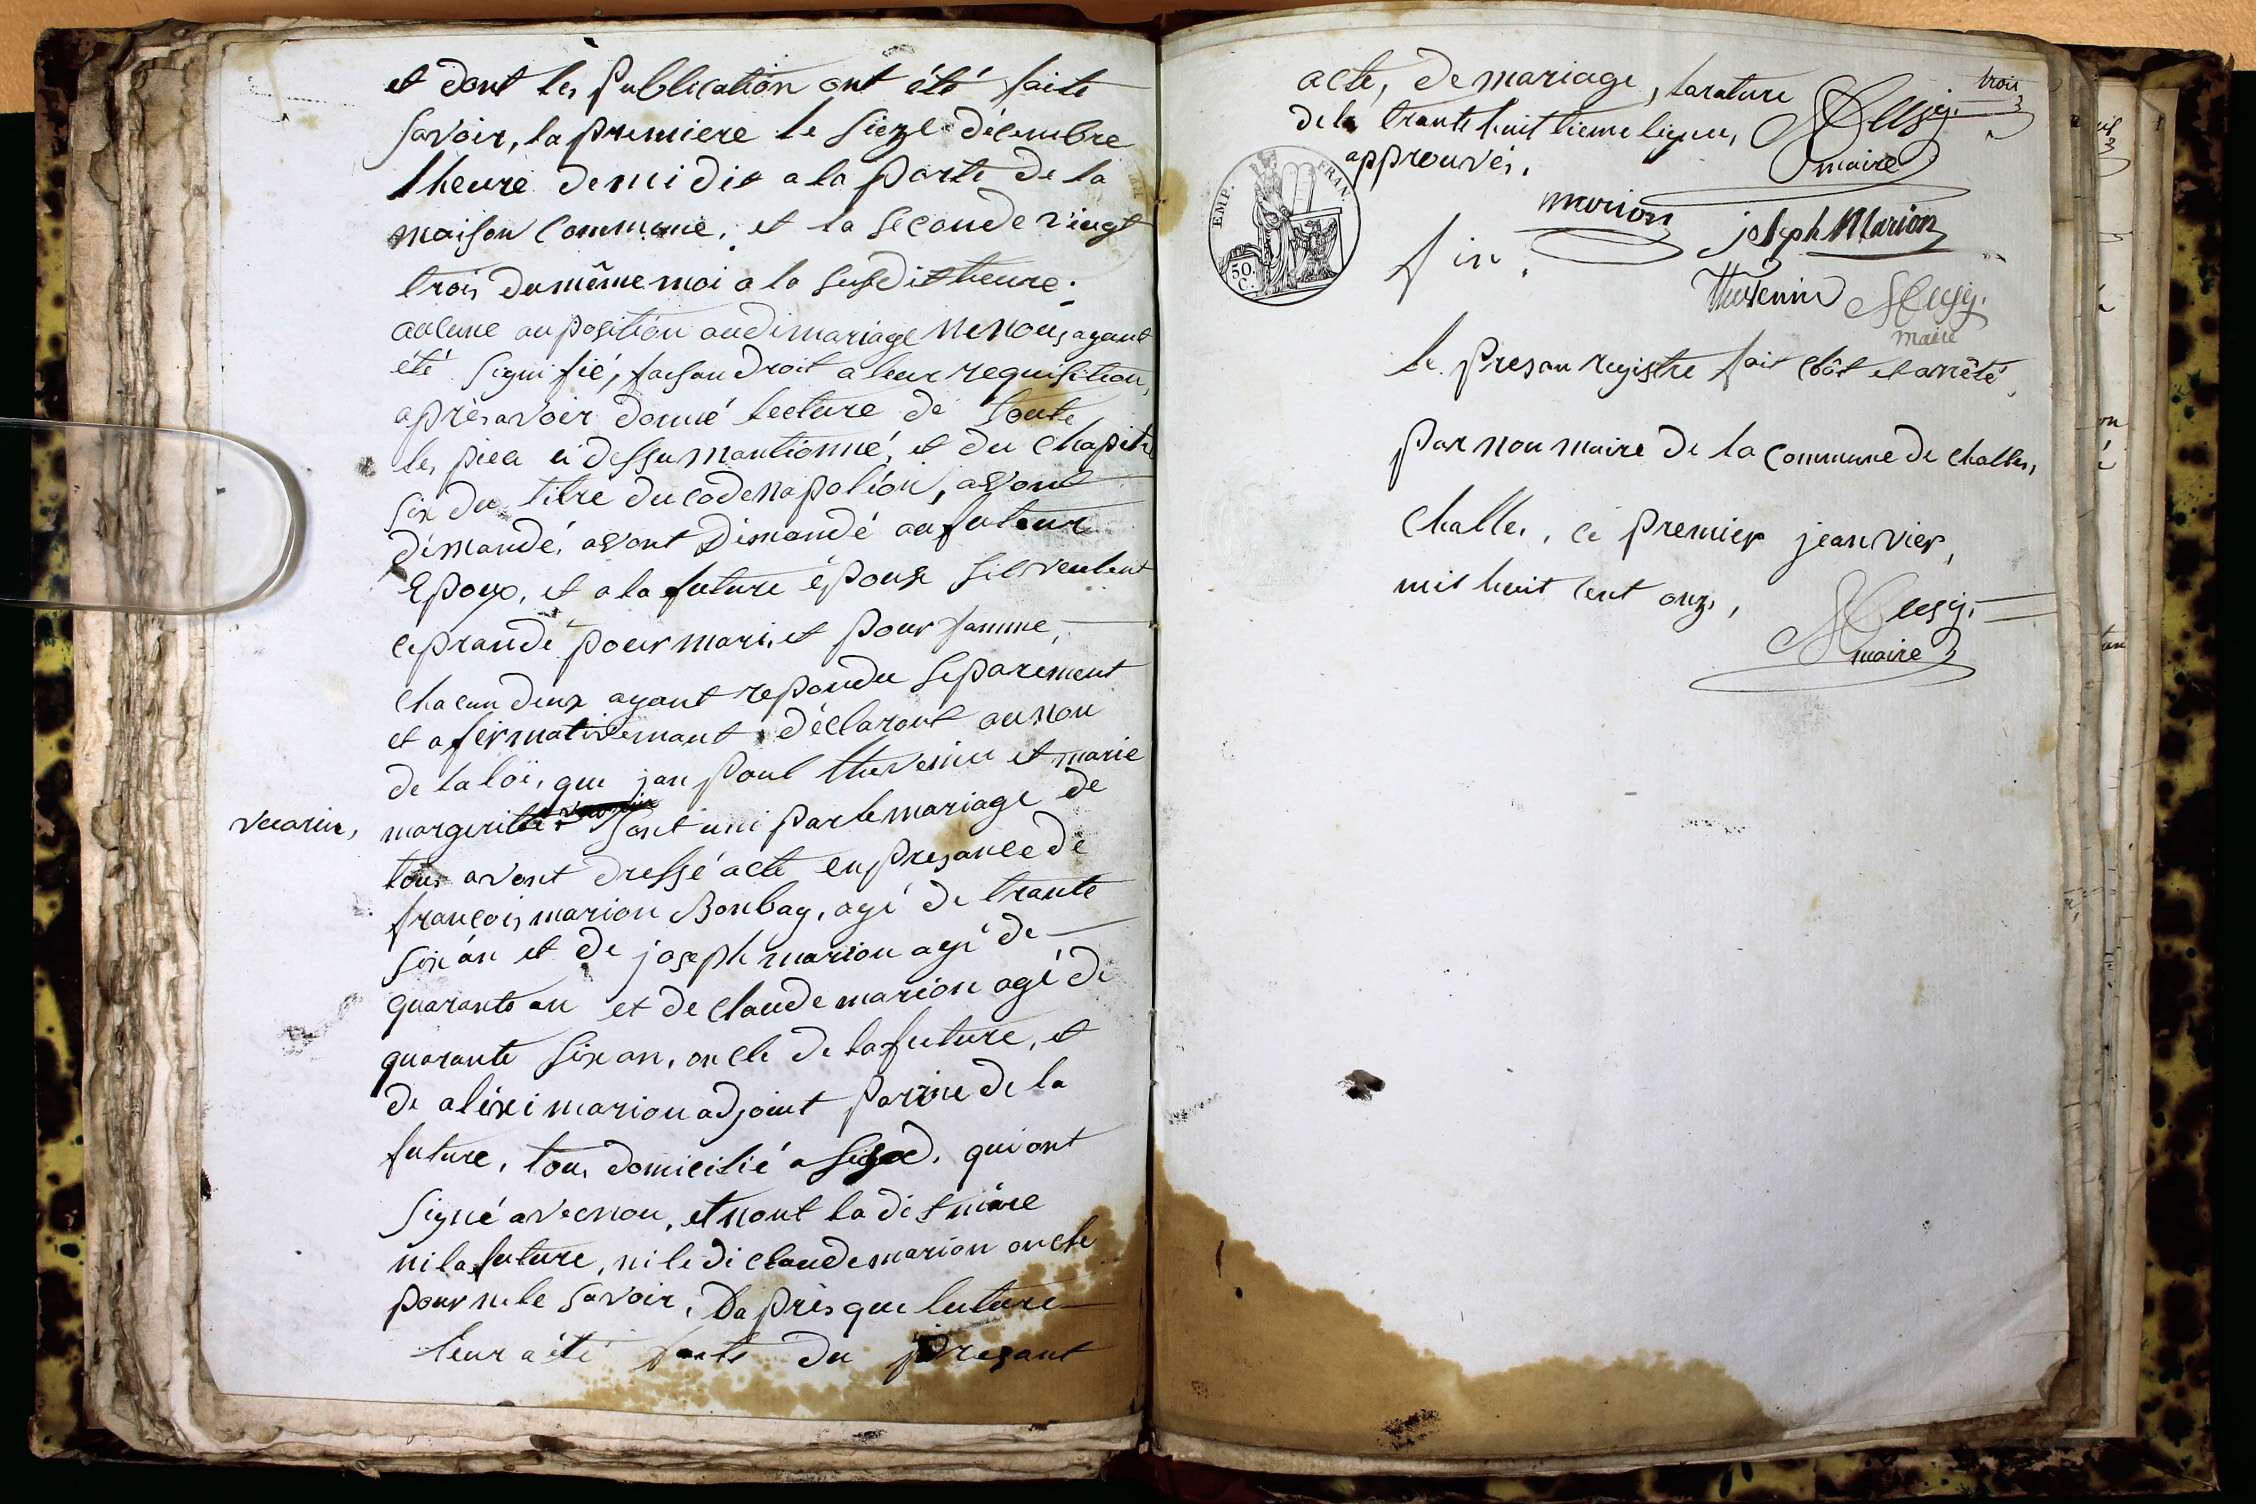 et dont les publication ont été faite
savoir, la premiere le sieze décembre
1 heure de midis a la porte de la
maison commune, et la seconde vingt
trois du même moi a la susdit heure;
aucune auposition audi mariage ne nous ayant
été signifié, faisan droit a leur requisition,
après avoir donné lecture de toute
les piece ci dessu mantionné, et du chapitre
six du titre du code napoléon, avont
démandé, avont démandé au futeur
Epoux, et a la future épouse sil veulent
se prandé pour mari, et pour famme,
chacun deux ayant repondu séparément
et afirmativemant déclaront au non
de la loi, que jan paul thevenin et marie
vecarin,
margerite sont uni par le mariage de
tous avont dressé acte en presance de
françois marion Bonbay, agé de trante
six an et de joseph marion agé de
quarante an et de claude marion agé de
quarante six an, oncle de la future, et
de aléxi marion adjoint parine de la
future, tous domicilié a , qui ont
signé avec nou, et nont la dit mère
ni la future, ni le di claude marion oncle
pour ne le savoir, Daprès que lecture
leur a été faite du présant
trois
acte, de mariage, larature
de la trante huit tieme ligne,
maire
approuvés.
EMP. FRAN.
50. C.
marion
joseph Marion
fin.
thevenin
maire
le presan registre fait clôt et arrêté,
par nou maire de la commune de challes,
challes, ce premier jeanvier,
mil huit cent onze,
maire